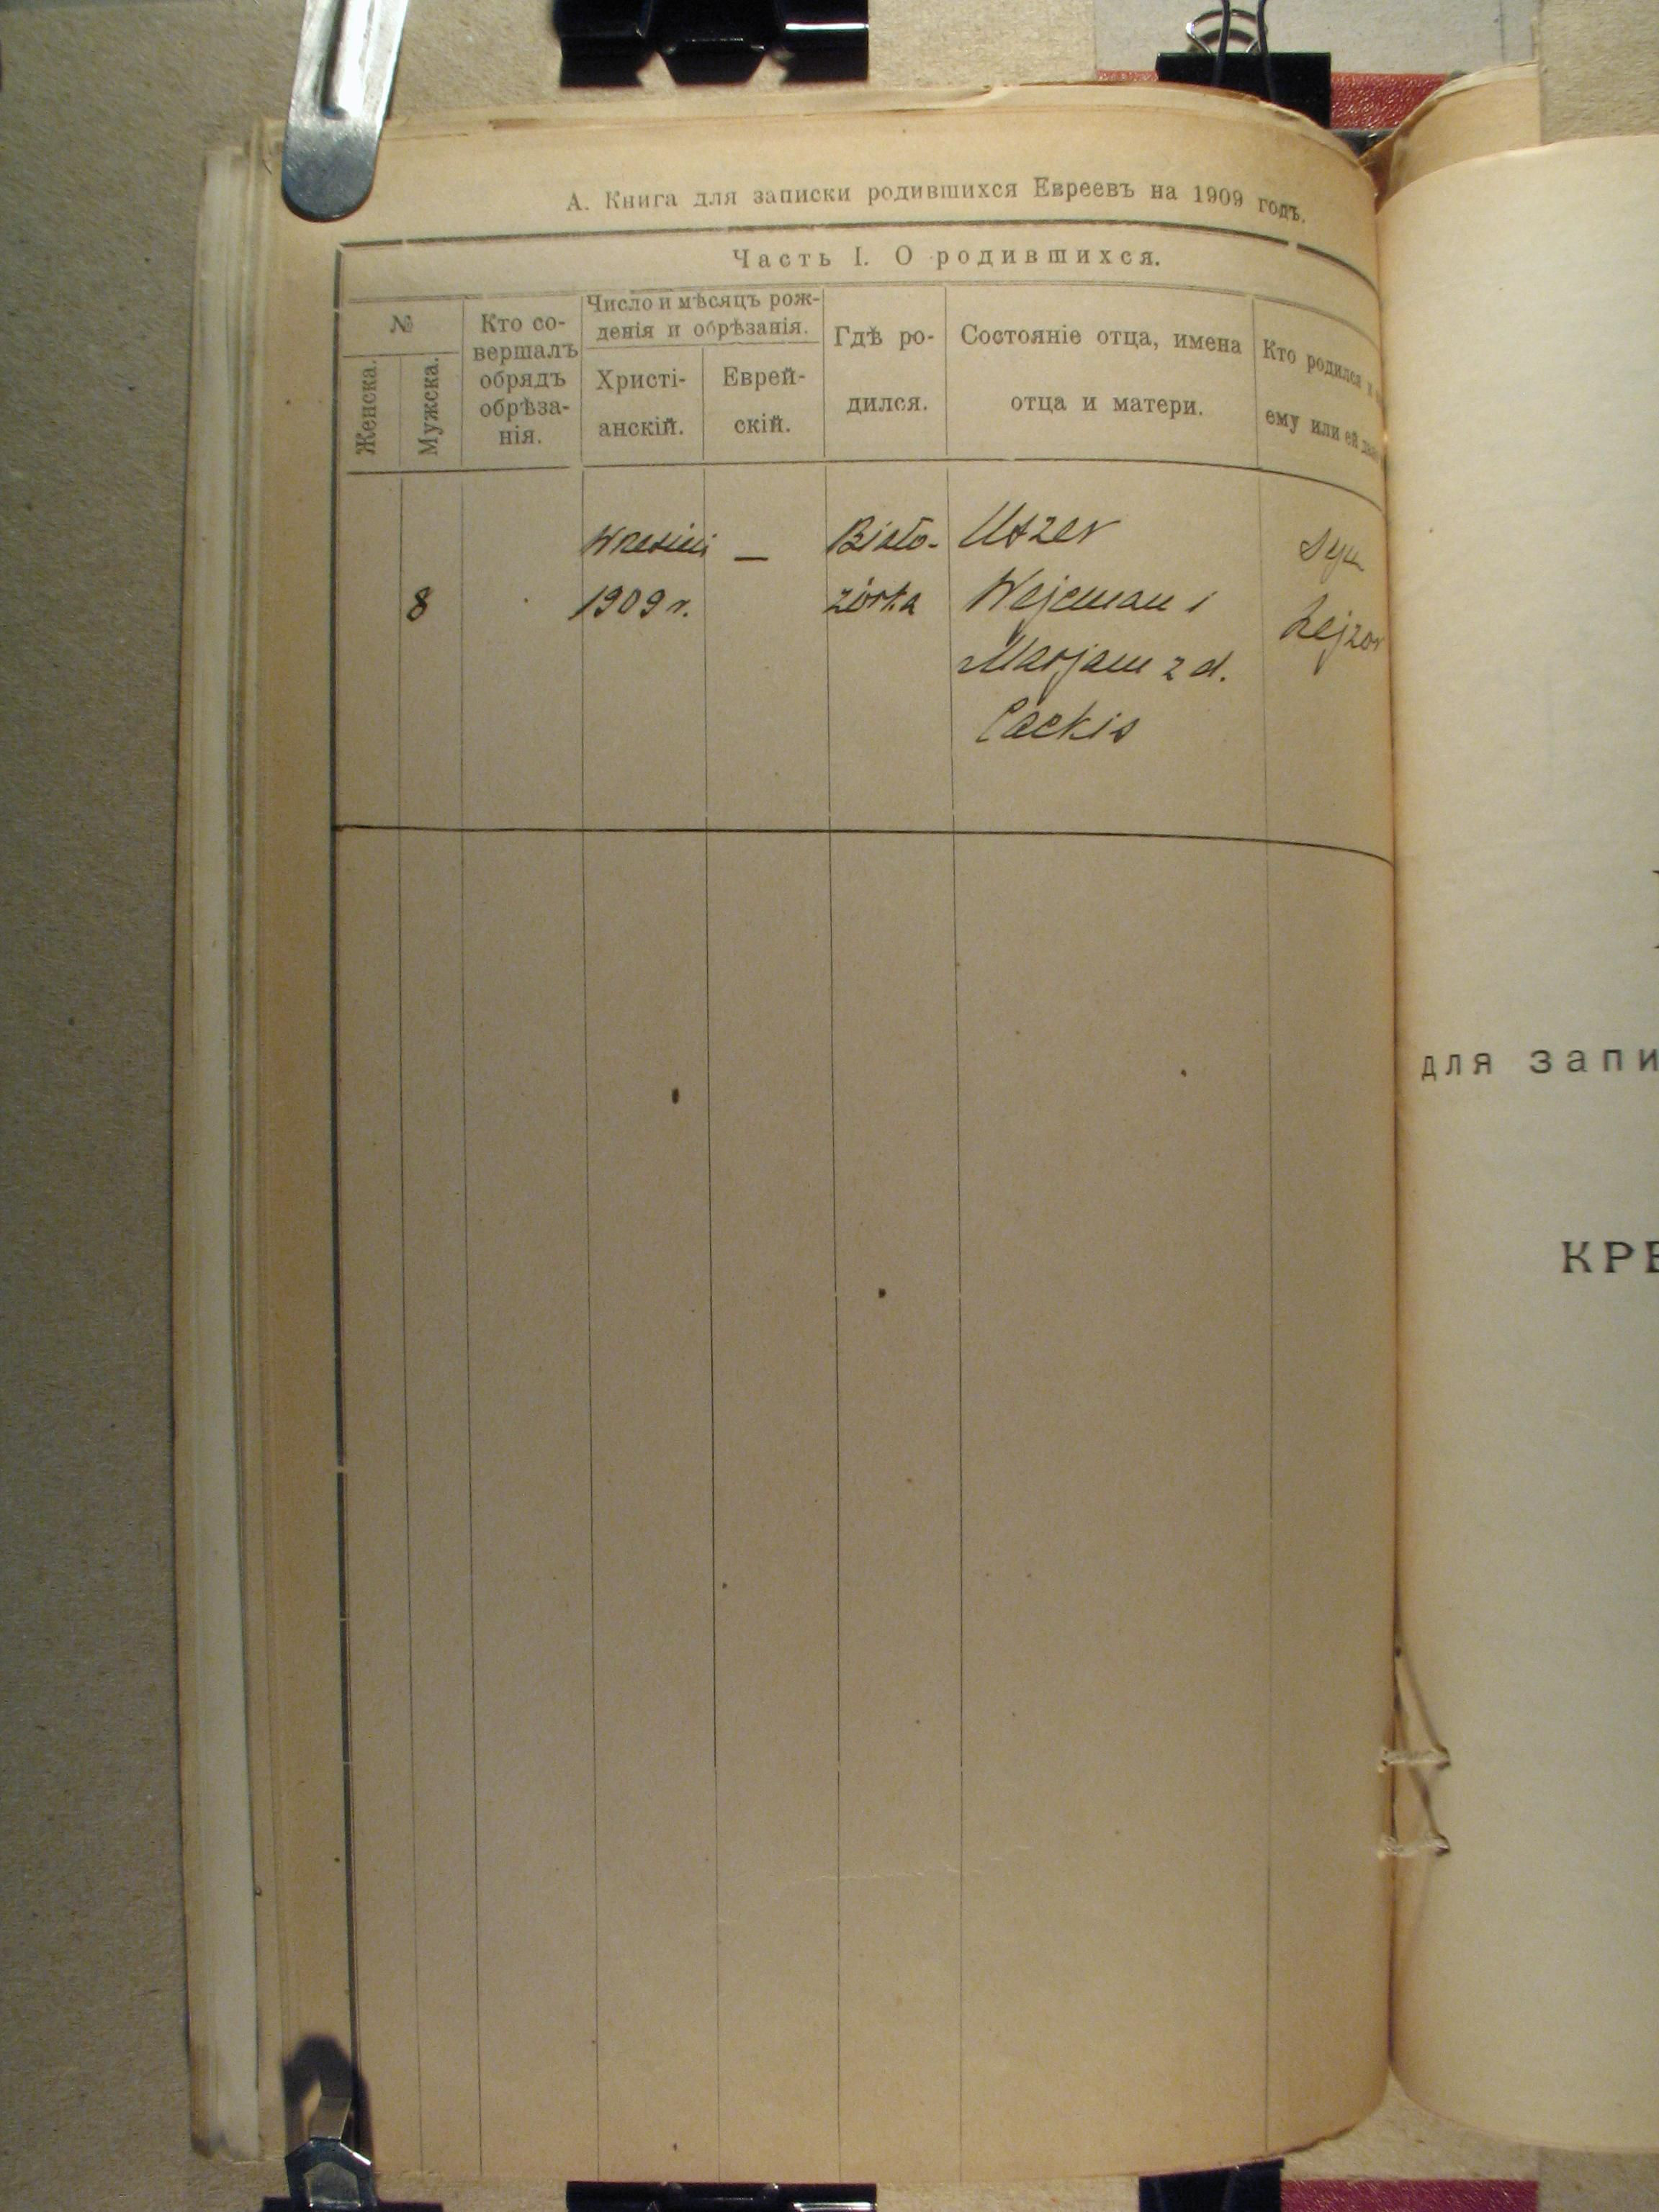 А. Книга для записки родившихся Евреевъ на 1909 годъ.
Часть I. О родившихся.
№
Женска.
Мужска.
Кто со-
вершалъ
обрядъ
обрѣза-
нія.
Число и мѣсяцъ рож-
денія и обрѣзанія.
Христі-
анскій.
Еврей-
скій.
Гдѣ ро-
дился.
Состояніе отца, имена
отца и матери.
Кто родился и
ему или ей
8
Wrzesień
1909 r.
—
Biało-
zórka
Uszer
Wejeman i
Marjam z d.
Packis
syn
Lejzor
для запи
КРЕ